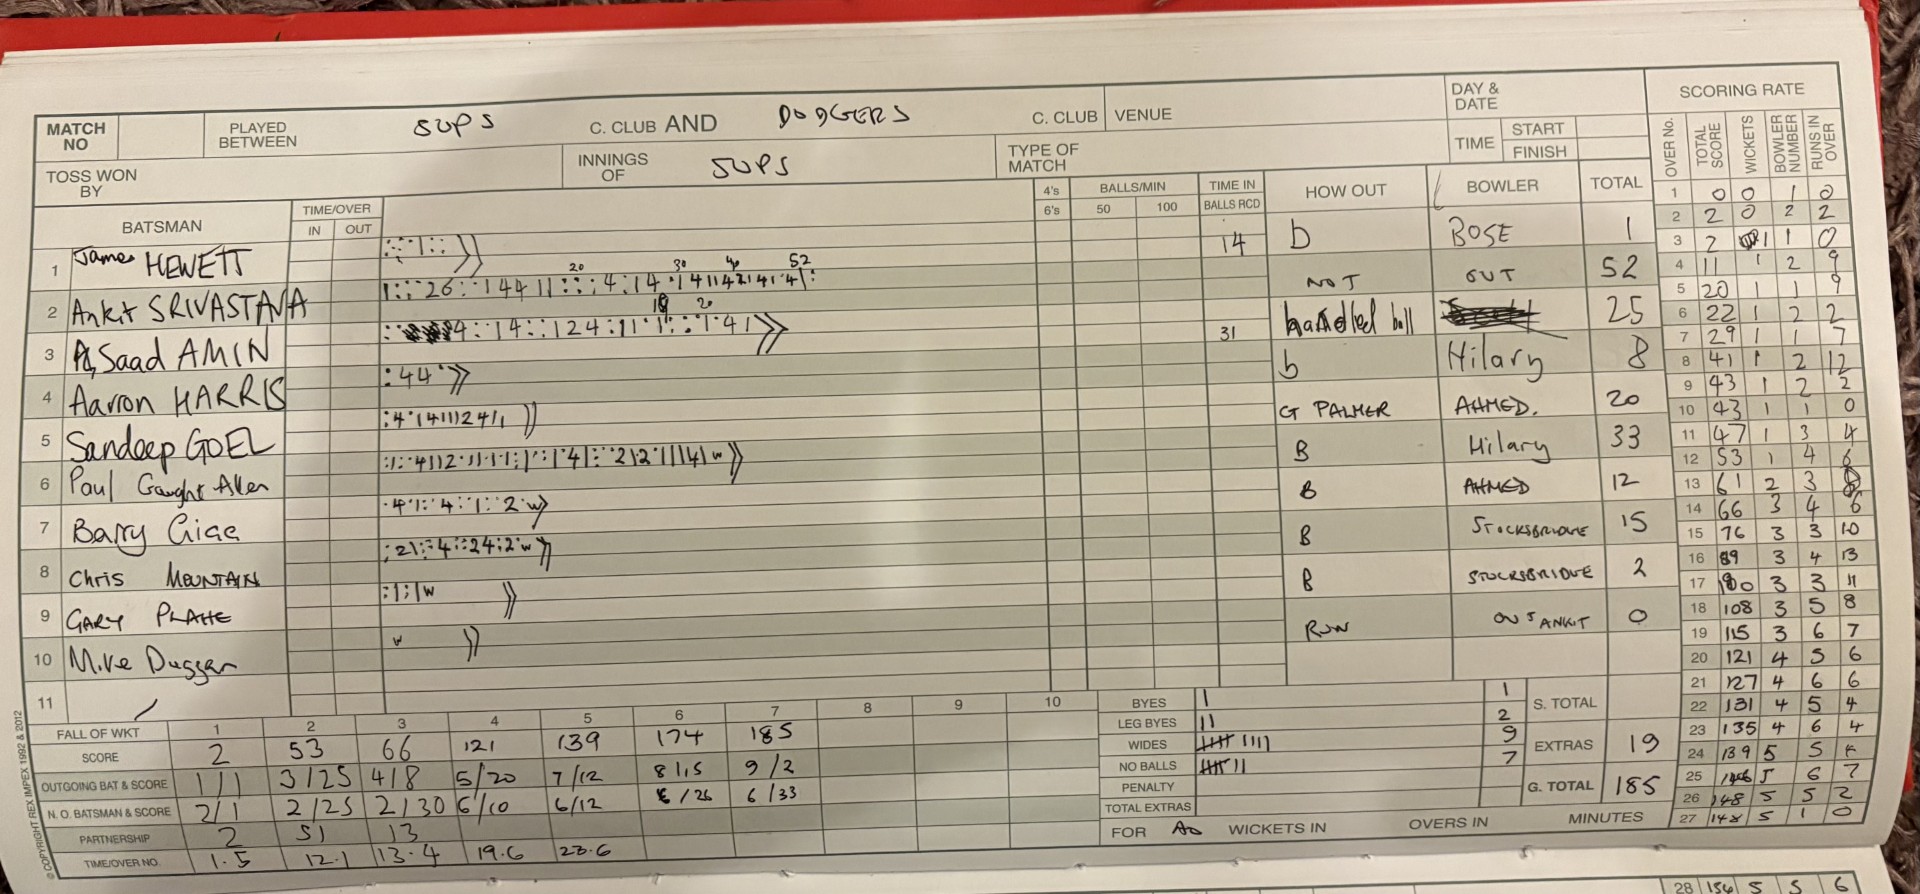 MATCH NO PLAYED BETWEEN SUPS C. CLUB AND DODGERS C. CLUB VENUE DAY & DATE
TOSS WON BY INNINGS OF SUPS TYPE OF MATCH TIME START FINISH
BATSMAN TIME/OVER IN OUT 4's 6's BALLS/MIN 50 100 TIME IN BALLS RCD HOW OUT BOWLER TOTAL
1 James HEWETT 14 b BOSE 1
20 30 40 52
2 Ankit SRIVASTAVA NOT OUT 52
3 Saad AMIN 31 handled ball 25
4 Aaron HARRIS :44· b Hilary 8
5 Sandeep GOEL G PALMER AHMED. 20
6 Paul B Hilary 33
7 Barry B AHMED 12
8 Chris MOUNTAIN B STOCKSBRIDGE 15
9 GARY PLAHE B STOCKSBRIDGE 2
10 Mike Duggan w RUN OUT ANKIT 0
11
FALL OF WKT 1 2 3 4 5 6 7 8 9 10
SCORE 2 53 66 121 139 174 185
OUTGOING BAT & SCORE 1/1 3/25 4/8 5/20 7/12 8/15 9/2
N. O. BATSMAN & SCORE 2/1 2/25 2/30 6/10 6/12 6/26 6/33
PARTNERSHIP 2 51 13
TIME/OVER NO. 1.5 12.1 13.4 19.6 23.6
BYES 1 1
LEG BYES 11 2
WIDES 9
NO BALLS 7
PENALTY
TOTAL EXTRAS
S. TOTAL
EXTRAS 19
G. TOTAL 185
FOR AO WICKETS IN OVERS IN MINUTES
SCORING RATE
OVER No. TOTAL SCORE WICKETS BOWLER NUMBER RUNS IN OVER
1 0 0 1 0
2 2 0 2 2
3 2 1 1 0
4 11 1 2 9
5 20 1 1 9
6 22 1 2 2
7 29 1 1 7
8 41 1 2 12
9 43 1 2 2
10 43 1 1 0
11 47 1 3 4
12 53 1 4 6
13 61 2 3 8
14 66 3 4 6
15 76 3 3 10
16 89 3 4 13
17 100 3 3 11
18 108 3 5 8
19 115 3 6 7
20 121 4 5 6
21 127 4 6 6
22 131 4 5 4
23 135 4 6 4
24 139 5 5 4
25 146 5 6 7
26 148 5 5 2
27 148 5 1 0
28 154 5 5 6
© COPYRIGHT REX IMPEX 1992 & 2012